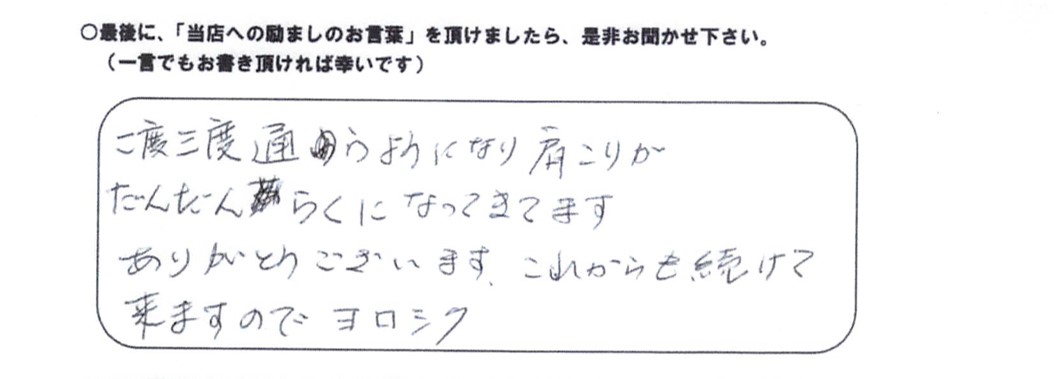 ○最後に、「当店への励ましのお言葉」を頂けましたら、是非お聞かせ下さい。
（一言でもお書き頂ければ幸いです）
二度三度通うようになり肩こりが
だんだんらくになってきてます
ありがとうございます、これからも続けて
来ますのでヨロシク